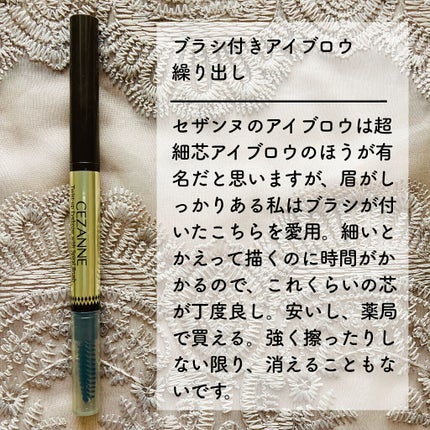 ブラシ付きアイブロウ
繰り出し
セザンヌのアイブロウは超
細芯アイブロウのほうが有
名だと思いますが、眉がし
っかりある私はブラシが付
いたこちらを愛用。細いと
かえって描くのに時間がか
かるので、これくらいの芯
が丁度良し。安いし、薬局
で買える。強く擦ったりし
ない限り、消えることもな
いです。
CEZANNE